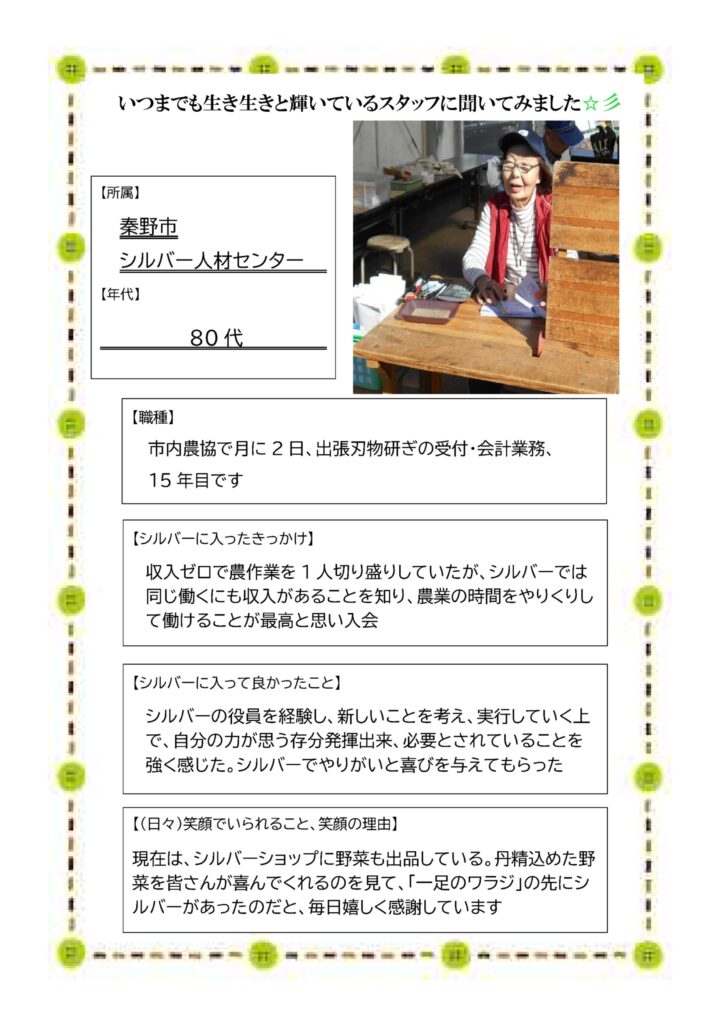 いつまでも生き生きと輝いているスタッフに聞いてみました☆彡
【所属】
秦野市
シルバー人材センター
【年代】
80代
【職種】
市内農協で月に2日、出張刃物研ぎの受付・会計業務、
15年目です
【シルバーに入ったきっかけ】
収入ゼロで農作業を1人切り盛りしていたが、シルバーでは
同じ働くにも収入があることを知り、農業の時間をやりくりし
て働けることが最高と思い入会
【シルバーに入って良かったこと】
シルバーの役員を経験し、新しいことを考え、実行していく上
で、自分の力が思う存分発揮出来、必要とされていることを
強く感じた。シルバーでやりがいと喜びを与えてもらった
【(日々)笑顔でいられること、笑顔の理由】
現在は、シルバーショップに野菜も出品している。丹精込めた野
菜を皆さんが喜んでくれるのを見て、「一足のワラジ」の先にシ
ルバーがあったのだと、毎日嬉しく感謝しています